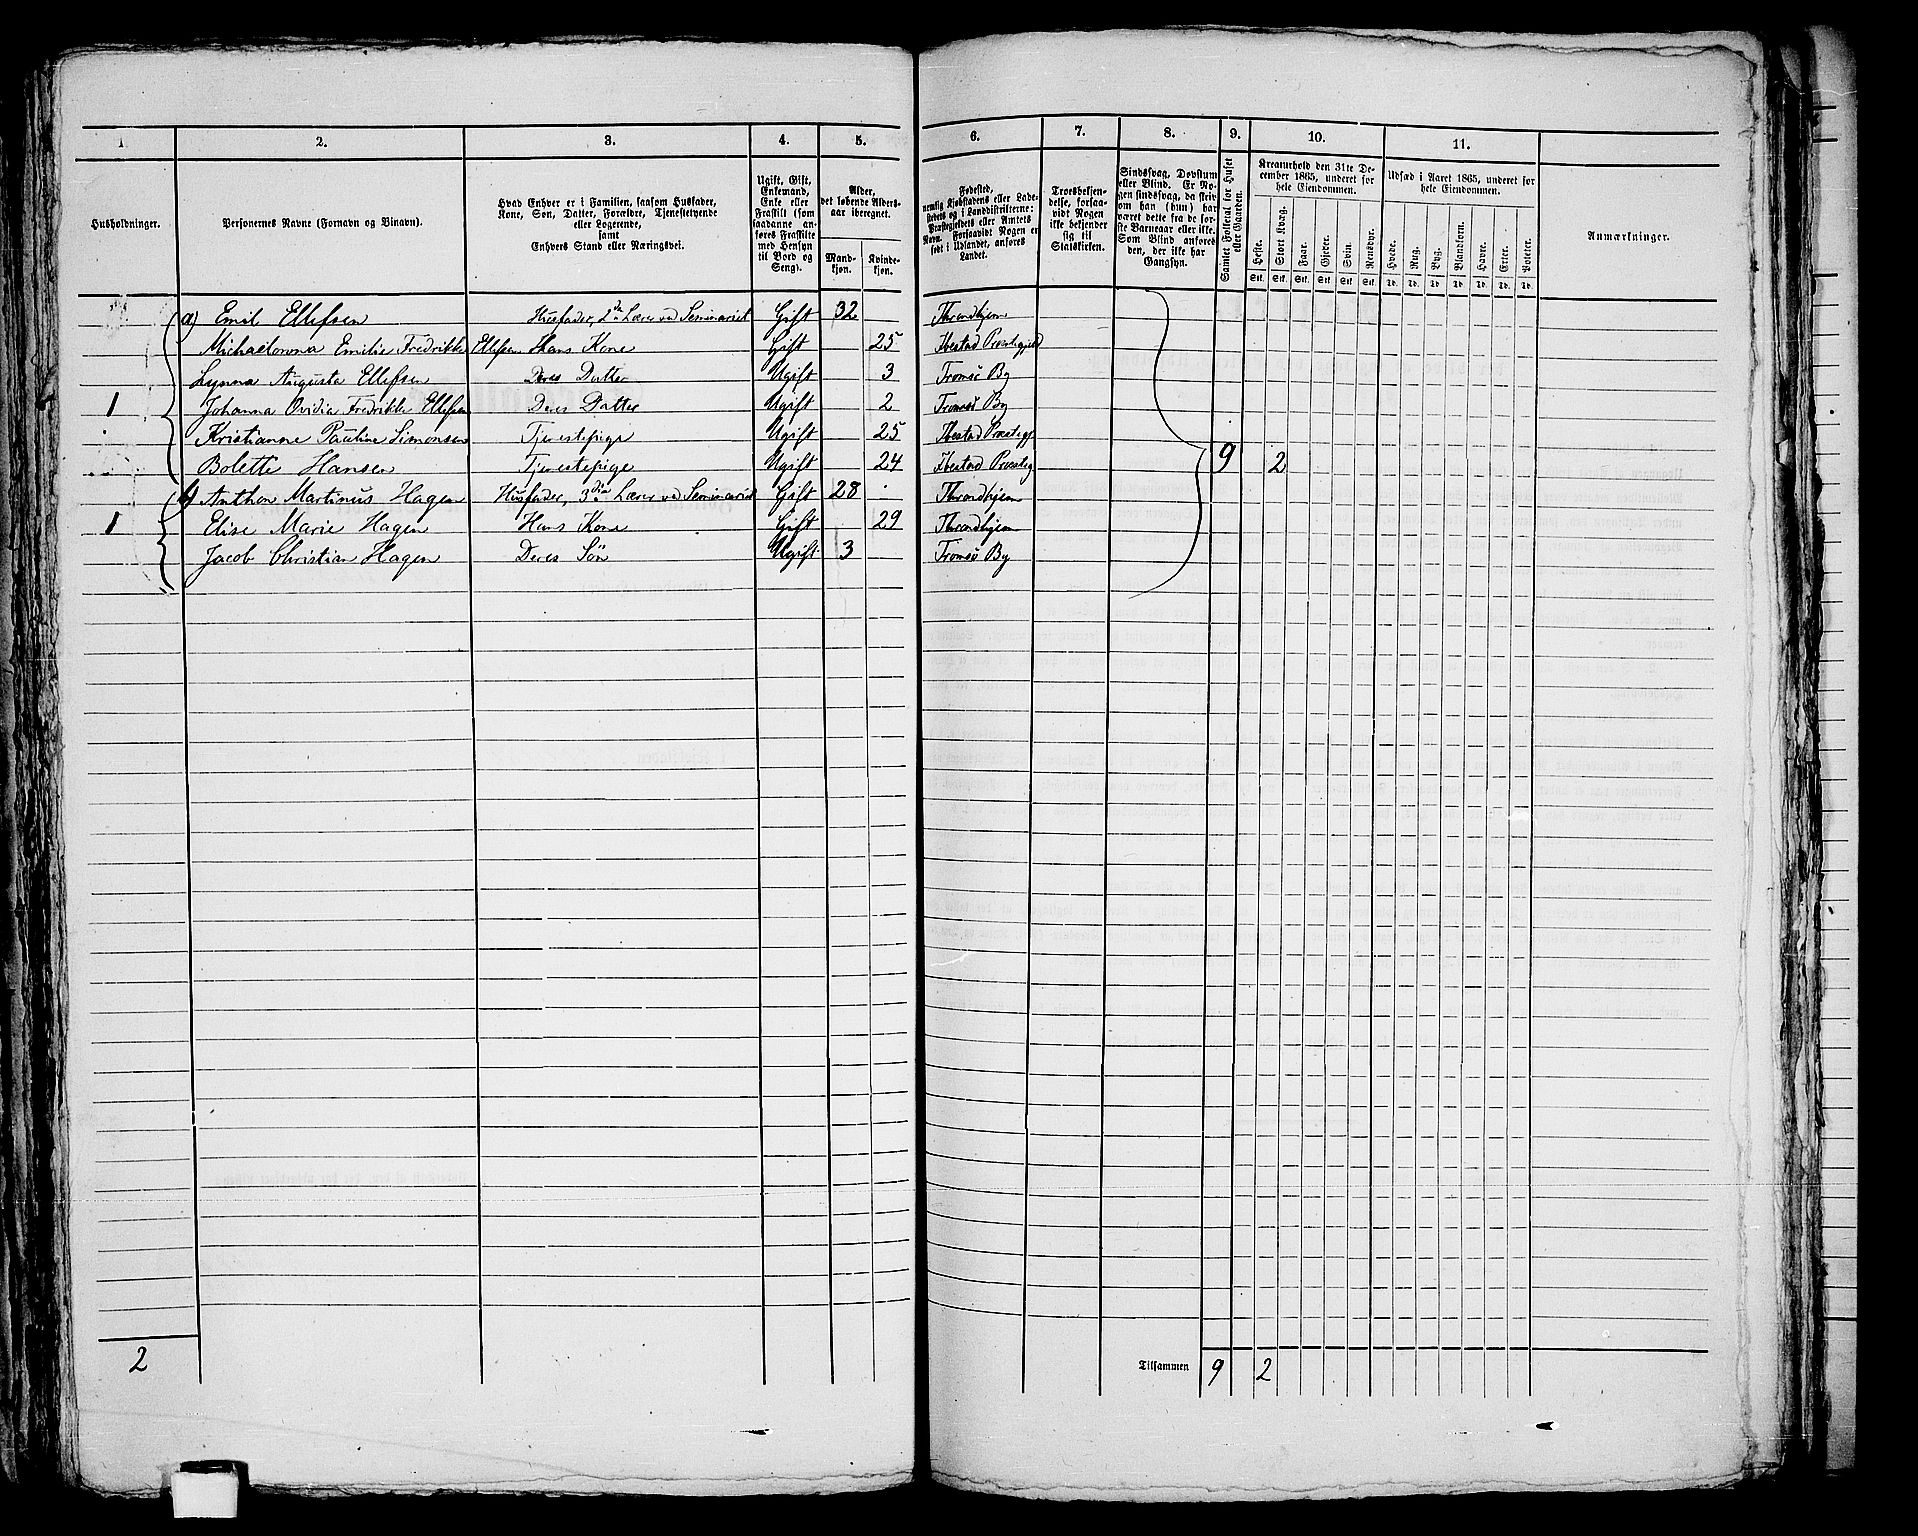 1
2.
3.
4.
5.
6.
7.
8.
9.
10.
11.
Husholdninger.
Personernes Navne (Fornavn og Binavn).
Hvad Enhver er i Familien, saasom Husfader,
Kone, Søn, Datter, Forældre, Tjenestetyende
eller Logerende,
samt
Enhvers Stand eller Næringsvei.
Ugift, Gift,
Enkemand,
Enke eller
Fraskilt (som
saadanne an-
føres Fraskilte
med Hensyn
til Bord og
Seng).
Alder,
det løbende Alders-
aar iberegnet.
Mand-
kjøn.
Kvinde-
kjøn.
Fødested,
nemlig Kjøbstadens eller Lade-
stedets og i Landdistrikterne:
Præstegjeldets eller Amtets
Navn. Forsaavidt Nogen er
født i Udlandet, anføres
Landet.
Troesbekjen-
delse, forsaa-
vidt Nogen
ikke bekjender
sig til
Statskirken.
Sindssvag, Døvstum
eller Blind. Er No-
gen sindssvag, da skriv
om han (hun) har
været dette fra de før-
ste Barneaar eller ikke.
Som Blind anføres
den, der ikke har
Gangsyn.
Samlet Folketal for Huset
eller Gaarden.
Kreaturhold den 31te De-
cember 1865, underet for
hele Eiendommen.
Heste. Stort Kvæg. Faar. Gjeter. Svin. Rensdyr.
Stk. Stk. Stk. Stk. Stk. Stk.
Udsæd i Aaret 1865, underet for
hele Eiendommen.
Hvede. Rug. Byg. Blandkorn. Havre. Erter. Poteter.
Td. Td. Td. Td. Td. Td. Td.
Anmærkninger.
a) Emil Ellefsen Husfader, 2den Lærer ved Seminariet Gift 32 Throndhjem
Michaelovna Emilie Fredrikke Ellefsen Hans Kone Gift 25 Ibestad Præstegjeld
Lynna Augusta Ellefsen Deres Datter Ugift 3 Tromsö By
1 Johanna Ovidia Fredrikke Ellefsen Deres Datter Ugift 2 Tromsö By
Kristianne Pauline Simonsen Tjenestepige Ugift 25 Ibestad Præstegj
Bolette Hansen Tjenestepige Ugift 24 Ibestad Præsteg 9 2
b) Anthon Martinus Hagen Husfader, 3die Lærer ved Seminariet Gift 28 Throndhjem
1 Elise Marie Hagen Hans Kone Gift 29 Throndhjem
Jacob Christian Hagen Deres Sön Ugift 3 Tromsö By
2
Tilsammen 9 2